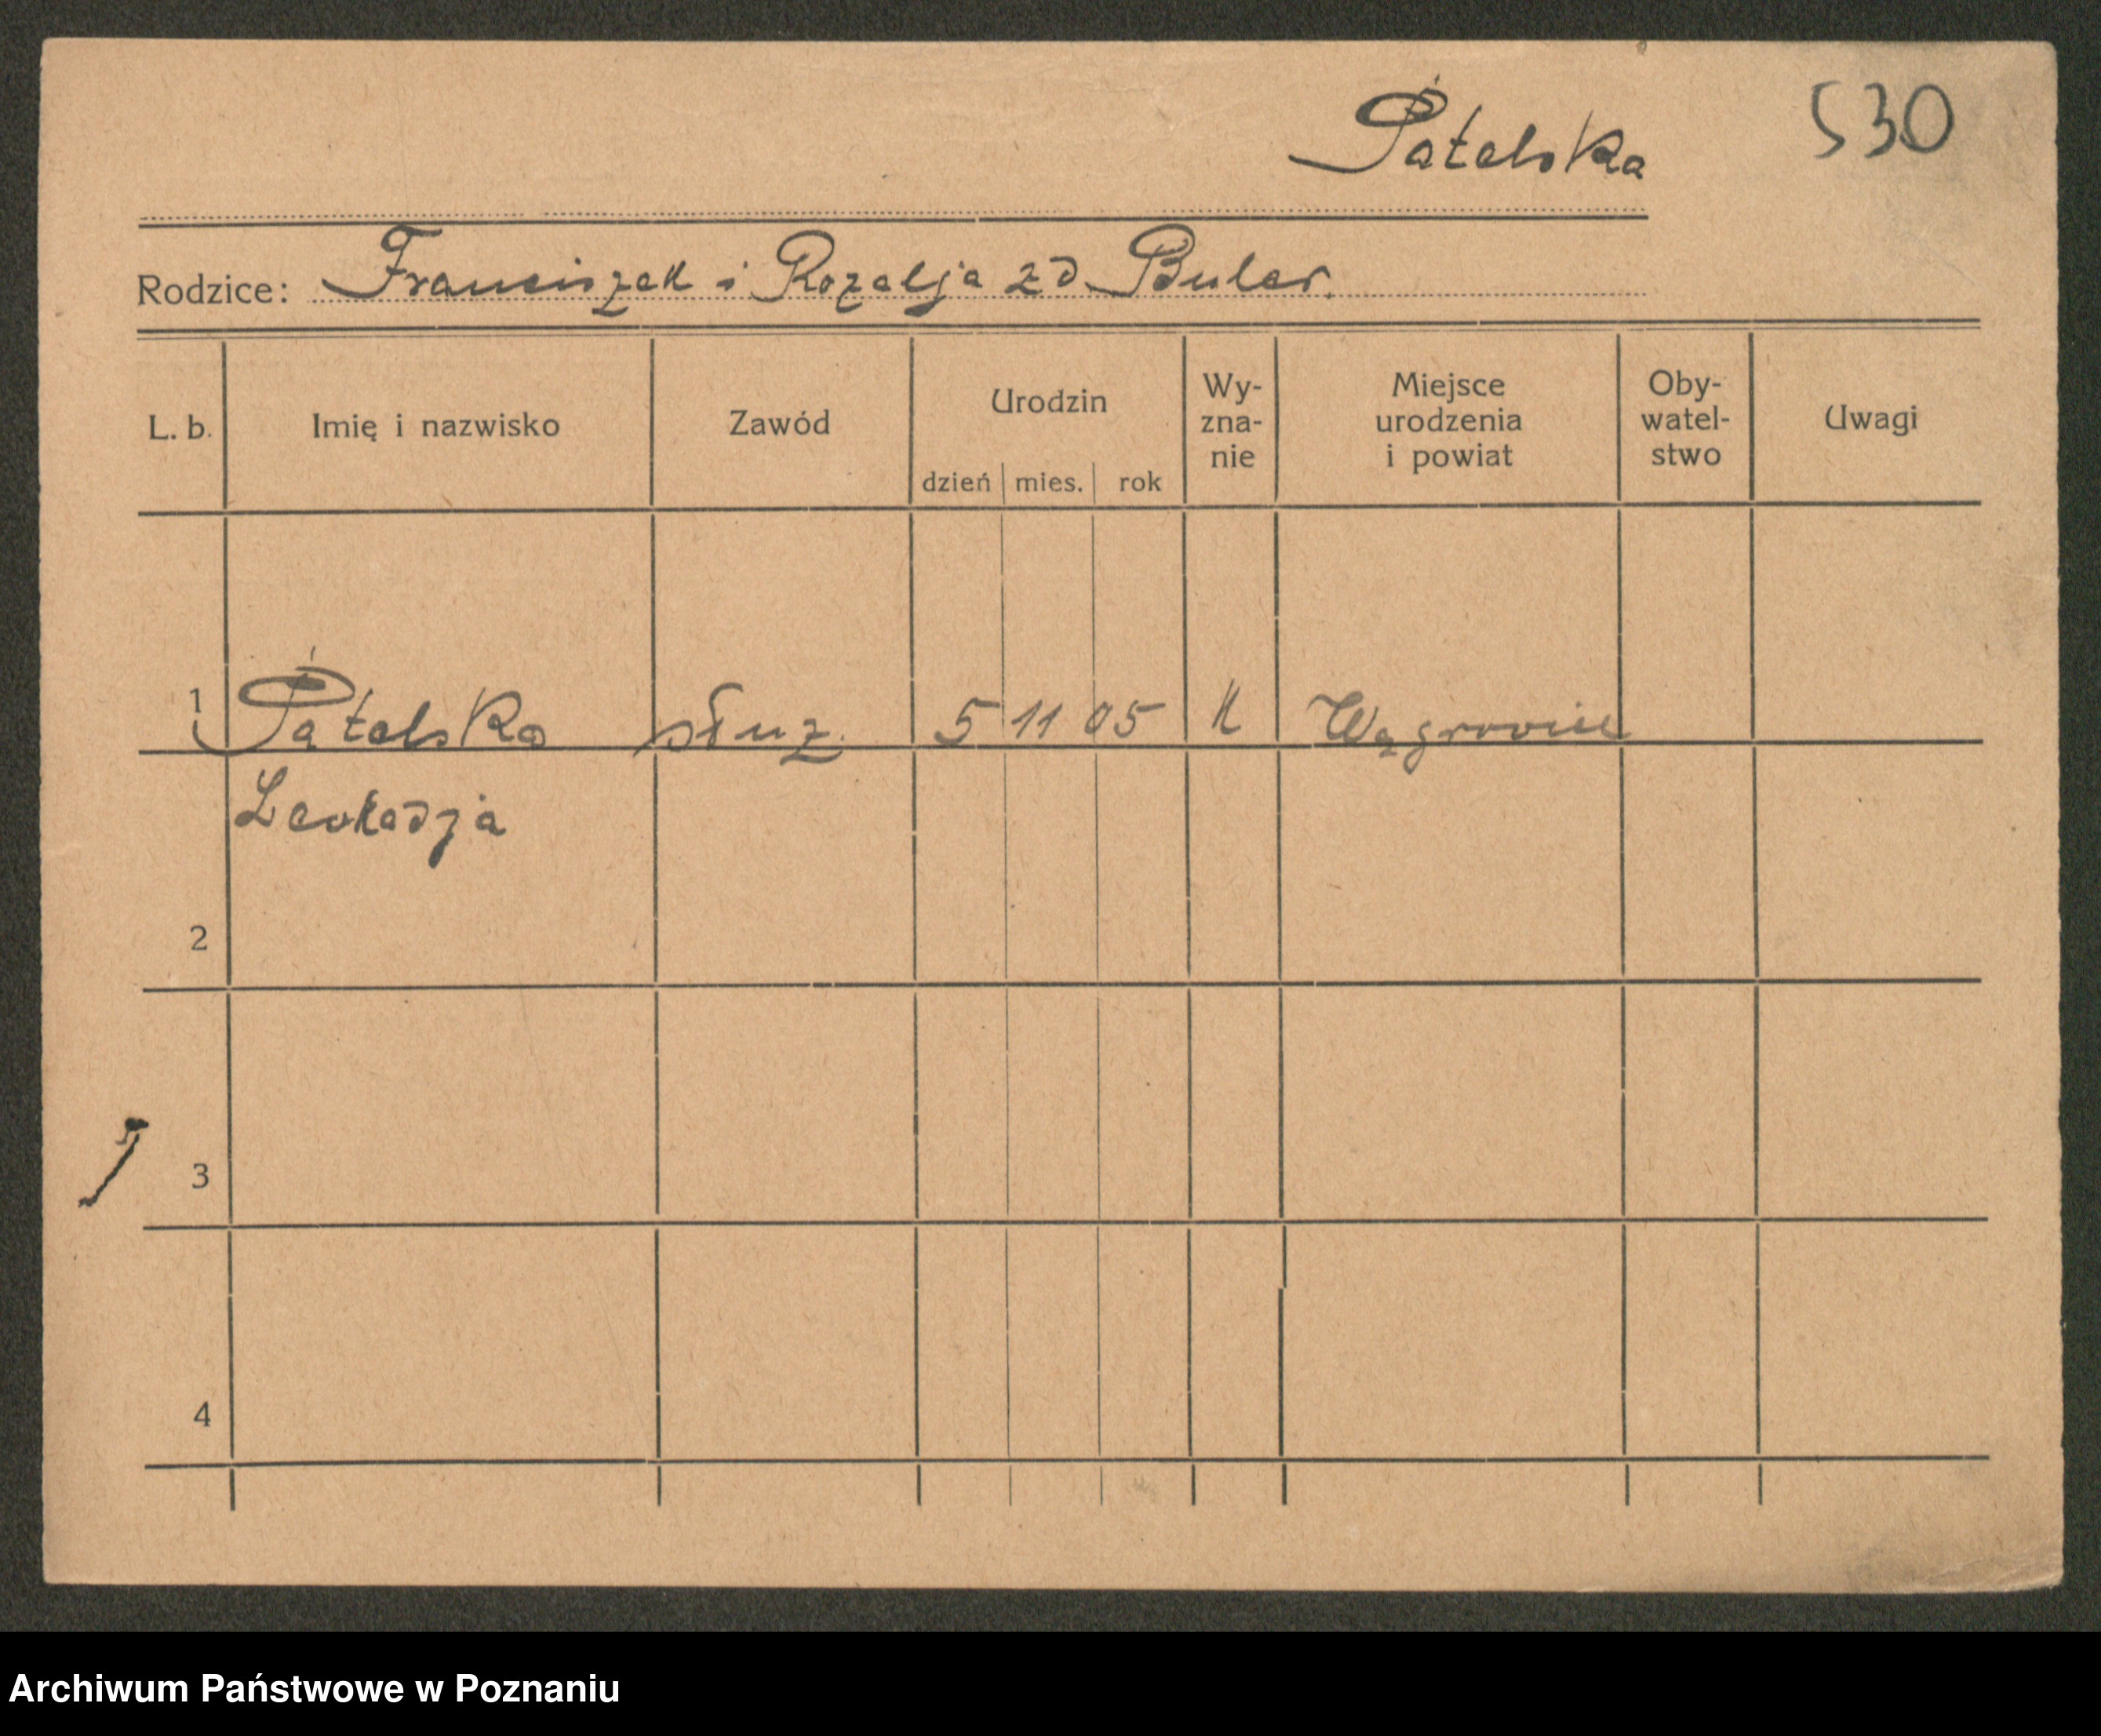 Patelska 530
Rodzice: Franciszek i Rozalja zd Buler.
L. b. Imię i nazwisko Zawód Urodzin dzień mies. rok Wy-zna-nie Miejsce urodzenia i powiat Oby-watel-stwo Uwagi
1 Patelska służ. 5 11 05 k Wągrowiec
Leokadja
2
3
4
Archiwum Państwowe w Poznaniu